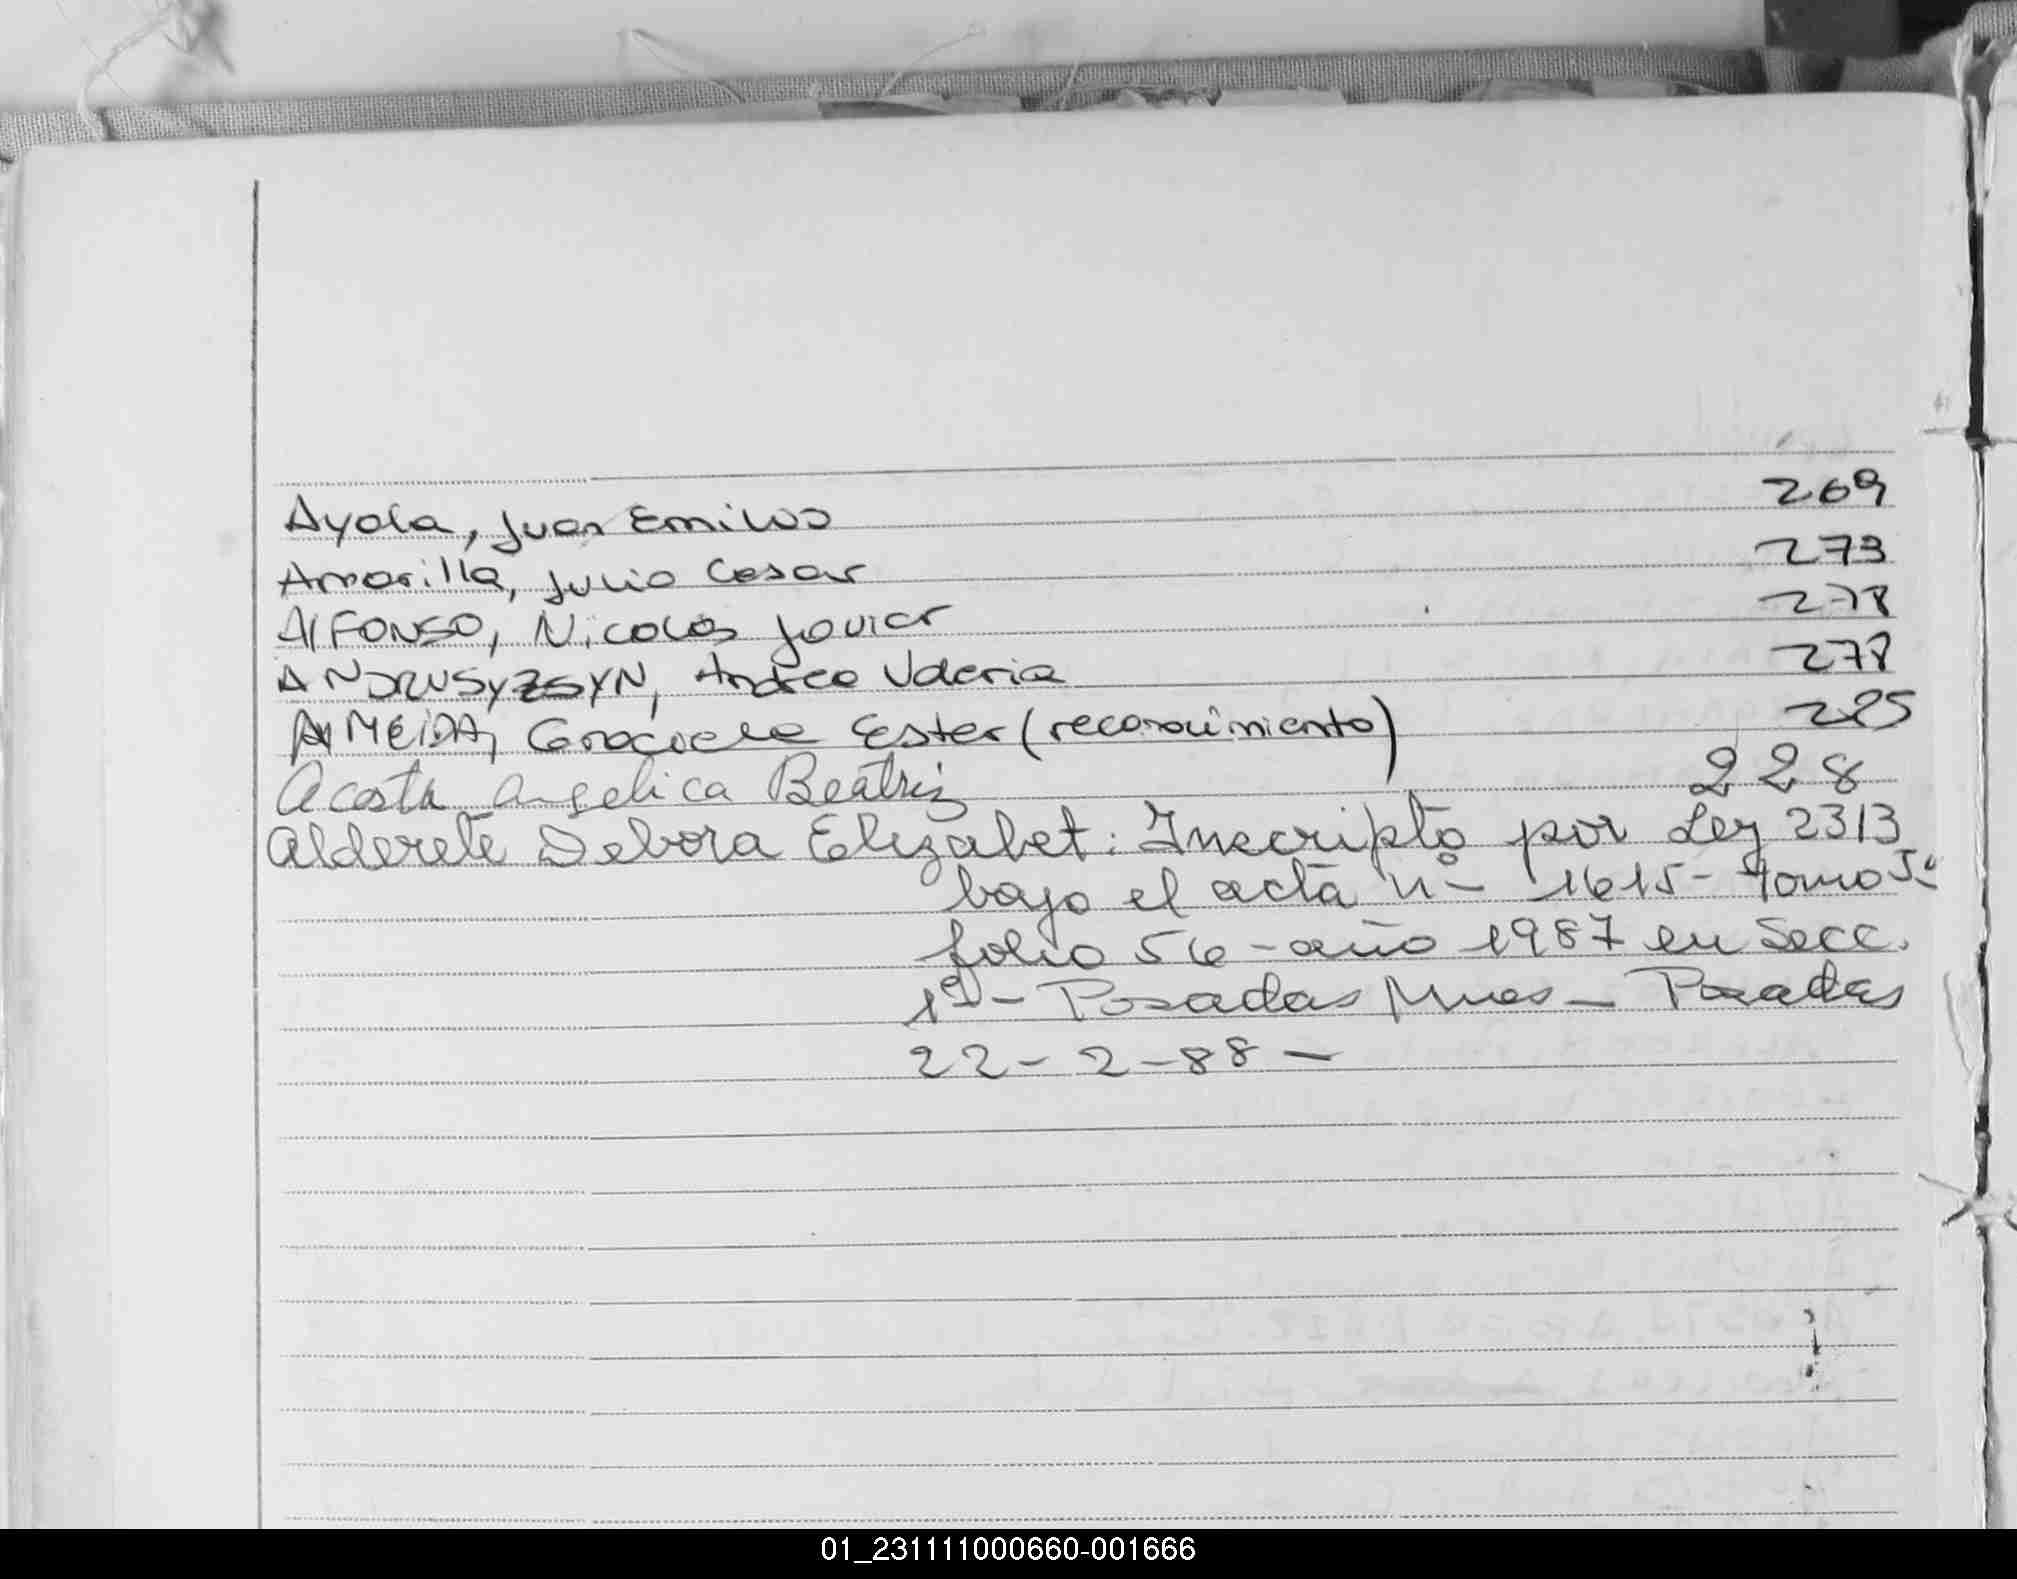 Ayala, Juan Emilio 269
Amarilla, Julio Cesar 273
AlFONSO, Nicolás Javier 278
ANDRUSYZSYN, Andrea Valeria 278
ALMEIDA, Graciela Ester (reconocimiento) 285
Acosta Angelica Beatriz 228
Alderete Debora Elizabet: Inscripto por Ley 2313
bajo el acta nº 1615- Tomo
folio 56 - año 1987 en Secc.
1ª - Posadas Mnes - Posadas
22-2-88 -
01_231111000660-001666